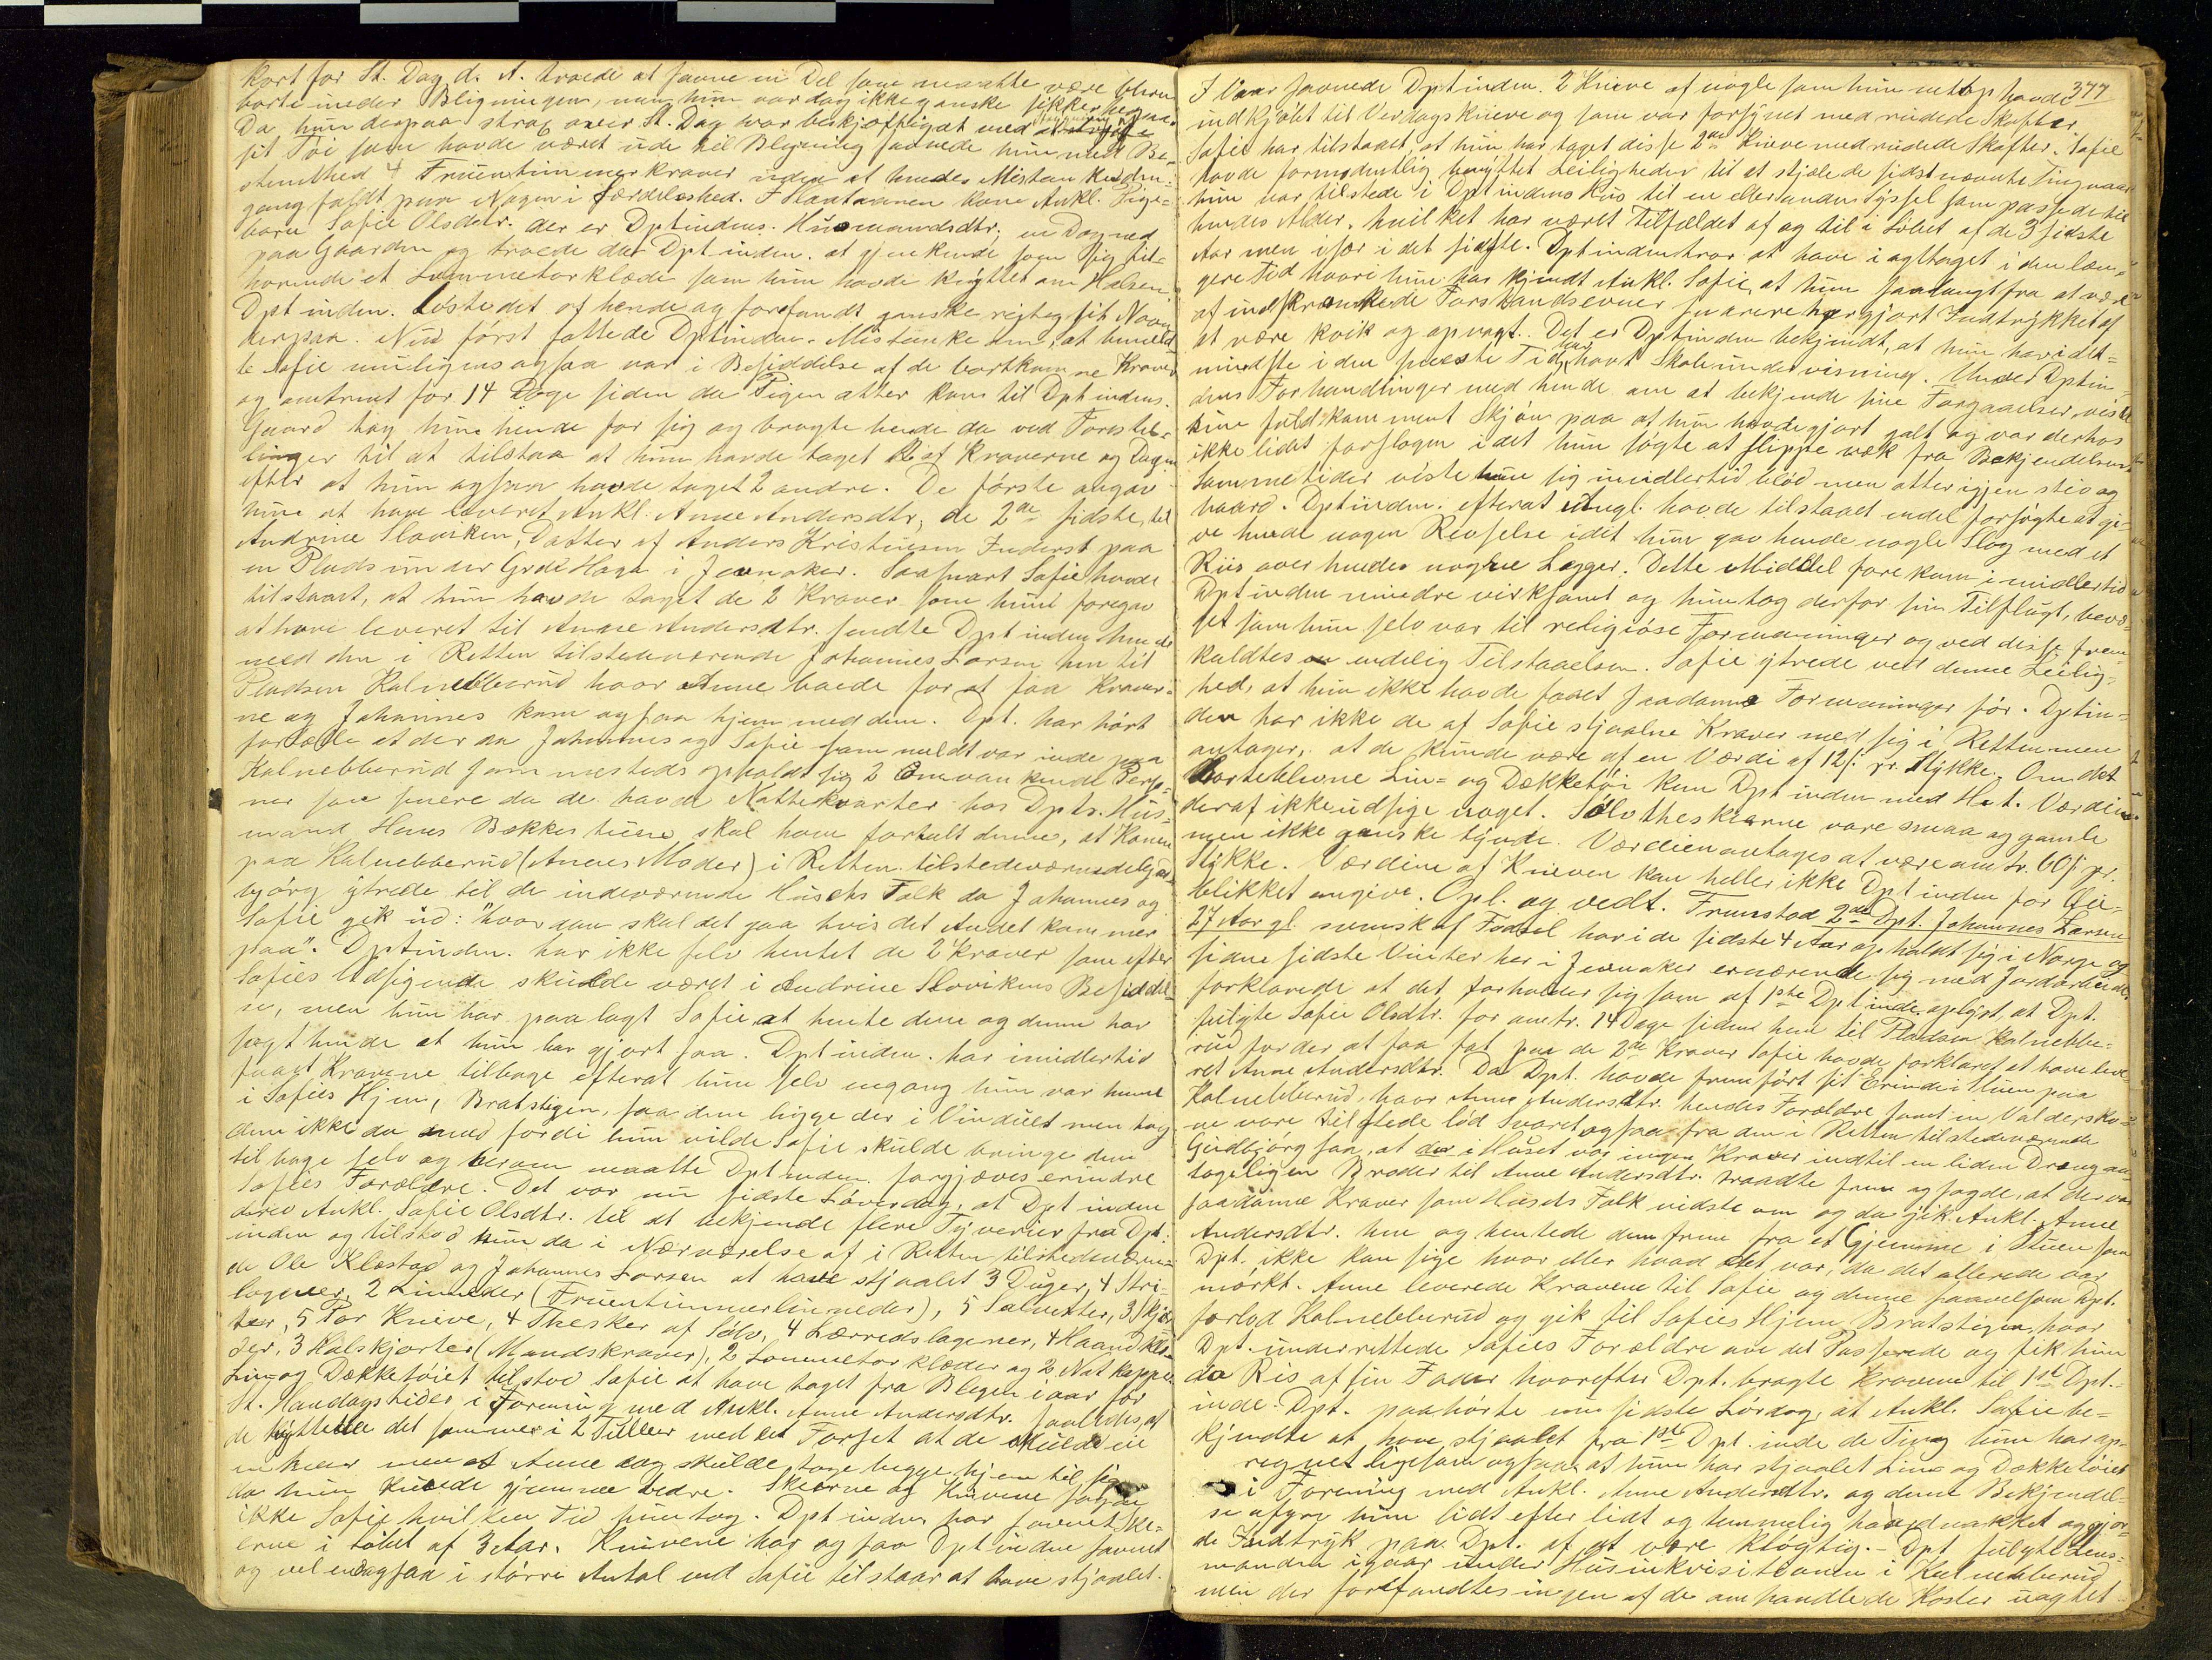 kort før St. Dag d. A. troede at savne en Del som maatte være bleven
borte under Blegningen, men hun var dog ikke ganske sikker herpaa.
Da hun derpaa strax over St. Dag var beskjæftiget med
sit Töi som havde været ude til Blegning savnede hun med Be-
stemthed 4 Fruentimmerkraver uden at hendes Mistanke den-
gang faldt paa Nogen i Særdeleshed. I Høstaanen kom Ankl. Pige-
barn Sofie Olsdtr. der er Dptindens Husmandsdtr, en Dag ned
paa Gaarden og troede da Dptinden at gjenkende som sig til-
hørende et Lommetørklæde som hun havde knyttet om Halsen.
Dptinden løste det af hende og forefandt ganske rigtig sit Navn
derpaa. Nu först fattede Dptinden Mistanke om, at bemeld-
te Sofie muligens ogsaa var i Besiddelse af de bortkomne Kraver
og omtrent for 14 Dage siden da Pigen atter kom til Dptindens
Gaard tog hun hende for sig og bragte hende da ved Forestil-
linger til at tilstaa at hun havde taget 2 af Kraverne og Dagen
efter at hun ogsaa havde taget 2 andre. De første angav
hun at have leveret Ankl. Anne Andersdtr, de 2de sidste, til
Andrine Slaviken, Datter af Anders Kristiansen Inderst paa
en Plads under Grd. Haga i Jevnaker. Saasnart Sofie havde
tilstaaet, at hun havde taget de 2 Kraver som hun foregav
at have leveret til Anne Andersdtr. sendte Dptinden hende
med den i Retten tilstedeværende Johannes Larsen hen til
Pladsen Kalnebberud hvor Anne boede for at faa Kraver-
ne og Johannes kom ogsaa hjem med dem. Dpt. har hørt
fortælle at der da Johannes og Sofie som meldt var inde paa
Kalnebberud sammesteds opholdt sig 2 Omvankende Perso-
ner som senere da de havde Nattekvarter hos Dpts. Hus-
mand Hans Bækkestuen skal have fortalt denne, at Konen
paa Kalnebberud (Annes Moder) i Retten tilstedeværende Gud-
bjørg ytrede til de indeværende Husets Folk da Johannes og
Sofie gik ud: "hvordan skal det gaa hvis det Andet kommer
paa". Dptinden har ikke selv hentet de 2 Kraver som efter
Sofies Udsigende skulde været i Andrine Slovikens Besiddel-
se, men hun har paalagt Sofie at hente dem og denne har
sagt hende at hun har gjort saa. Dptinden har imidlertid
faaet Kravene tilbage efterat hun selv engang hun var henne
i Sofies Hjem, Bratstigen, saa dem ligge der i Vinduet men tog
dem ikke da med fordi hun vilde Sofie skulde bringe dem
tilbage selv og herom maatte Dptinden forgjæves erindre
Sofies Forældre. Det var nu sidste Løverdag, at Dptinden
drev Ankl. Sofie Olsdtr. til at bekjende flere Tyverier fra Dpt-
inden og tilstod hun da i Nærværelse af i Retten tilstedeværen-
de Ole Klæstad og Johannes Larsen at have stjaalet 3 Duger, 4 Stri-
lagener, 2 Linneder (Fruentimmerlinneder), 5 Salvetter, 3 Skjor-
ter, 5 Par Knive, 4 Thesker af Sölv, 4 Lærredslagener, 4 Haandklæ-
der, 3 Halskjorter (Mandskraver), 2 Lommetørklæder og 2 Natkapper.
Lin og Dækketøiet tilstod Sofie at have taget fra Blegen iaar før
St. Hansdagstider i Forening med Ankl. Anne Andersdtr. saaledes at
de bytttede det sammen i 2 Tuller med det Forsæt at de skulde ha
en hver men at Anne dog skulde tage begge hjem til sig
da hun kunde gjemme bedre. Skeerne og Knivene sagde
ikke Sofie hvilken Tid hun tog. Dptinden har savnet Ske-
erne i Løbet af 3 Aar. Knivene har ogsaa Dptinden savnet
og vel endogsaa i større Antal end Sofie tilstaar at have stjaalet.
377
I Vaar savnede Dptinden 2 Knive af nogle som hun netop havde
indkjøbt til Verdagsknive og som var forsynet med rudede Skafter.
Sofie har tilstaaet, at hun har taget disse 2de Knive med rudede Skafter. Sofie
havde formodentlig benyttet Leiligheden til at stjæle de sidstnævnte Ting naar
hun var tilstede i Dptindens Hus til en eller anden Syssel som passede til
hendes Alder, hvilket har været Tilfældet af og til i Løbet af de 3 sidste
Aar men især i det sidste. Dptinden tror at have iagttaget i den læn-
gere Tid hvori hun har kjendt Ankl. Sofie, at hun saalangt fra at være
af indskrænkede Forstandsevner snarere har gjort Indtrykket af
at være kvik og opvagt. Det er Dptinden bekjendt, at hun har i det-
mindste i den seneste Tid har havt Skoleundervisning. Under Dptin-
dens Forhandlinger med hende om at bekjende sine Forgaaelser, viste
hun fuldkomment Skjøn paa at hun havde gjort galt og var derhos
ikke lidet forslagen idet hun søgte at slippe væk fra Bekjendelsen
Sommetider viste hun sig imidlertid blød men atter igjen stiv og
haard. Dptinden efterat Angl. havde tilstaaet endel forsøgte at gi-
ve hende nogen Revselse idet hun gav hende nogle Slag med et
Riis over hendes nøgne Lægger. Dette Middel forekom imidlertid
Dptinden mindre virksomt og hun tog derfor sin Tilflugt, bevæ-
get som hun selv var til religiøse Formaninger og ved disse frem-
kaldtes en endelig Tilstaaelsen. Sofie ytrede ved denne Leilig-
hed, at hun ikke havde faaet saadanne Formaninger før. Dptin-
den har ikke de af Sofie stjaalne Kraver med sig i Retten men
antager, at de kunde være af en Værdi af 12 ſ pr. Stykke. Om det
bortblevne Lin- og Dækketøi kan Dptinden med H. t. Værdien
deraf ikke udsige noget. Sølvtheskeerne vare smaa og gamle
men ikke ganske tynde. Værdien antages at være omtr. 60 ſ pr.
Stykke. Værdien af Kniven kan heller ikke Dptinden for Øie-
blikket angive. Opl. og vedt. Fremstod 2de Dpt. Johannes Larsen
27 Aar gl. svensk af Fødsel har i de sidste 4 Aar opholdt sig i Norge og
siden sidste Vinter her i Jevnaker ernærende sig med Jordarbeide
forklarede at det forholder sig som af 1ste Dptinde oplyst, at Dpt.
fulgte Sofie Olsdtr. for omtr. 14 Dage siden hen til Pladsen Kalnebbe-
rud for der at faa fat paa de 2de Kraver Sofie havde forklaret at have leve-
ret Anne Andersdtr. Da Dpt. havde fremført sit Erinde i Stuen paa
Kalnebberud, hvor Anne Andersdtr. hendes Forældre samt en Valdersko-
ne vare tilstede lød Svaret ogsaa fra den i Retten tilstedeværende
Gudbjørg saa, at der i Huset var ingen Kraver indtil en liden Dreng an-
tageligen Broder til Anne Andersdtr. traadte frem og sagde, at der var
saadanne Kraver som Husets Folk vidste om og da gik Ankl. Anne
Andersdtr. hen og hentede dem frem fra et Gjemme i Stuen som
Dpt. ikke kan sige hvor eller hvad det var, da det allerede var
mørkt. Anne leverede Kravene til Sofie og denne saavelsom Dpt.
forlod Kalnebberud og gik til Sofies Hjem Bratstigen, hvor
Dpt. underrettede Sofies Forældre om det Passerede og fik hun
da Ris af sin Fader hvorefter Dpt. bragte Kravene til 1ste Dpt-
inde. Dpt. paahørte nu sidste Lørdag, at Ankl. Sofie be-
kjendte at have stjaalet fra 1ste Dptinde de Ting hun har op-
regnet ligesom ogsaa at hun har stjaalet Lin og Dækketøiet
i Forening med Ankl. Anne Andersdtr. og denne Bekjendel-
se afgav hun lidt efter lidt og temmelig haardnakket og gjor-
de Indtryk paa Dpt. af at være kløgtig. – Dpt. fulgte Lens-
manden igaar under Husinkvisitionen i Kalnebberud
men der forefandtes ingen af de omhandlede Koster uagtet